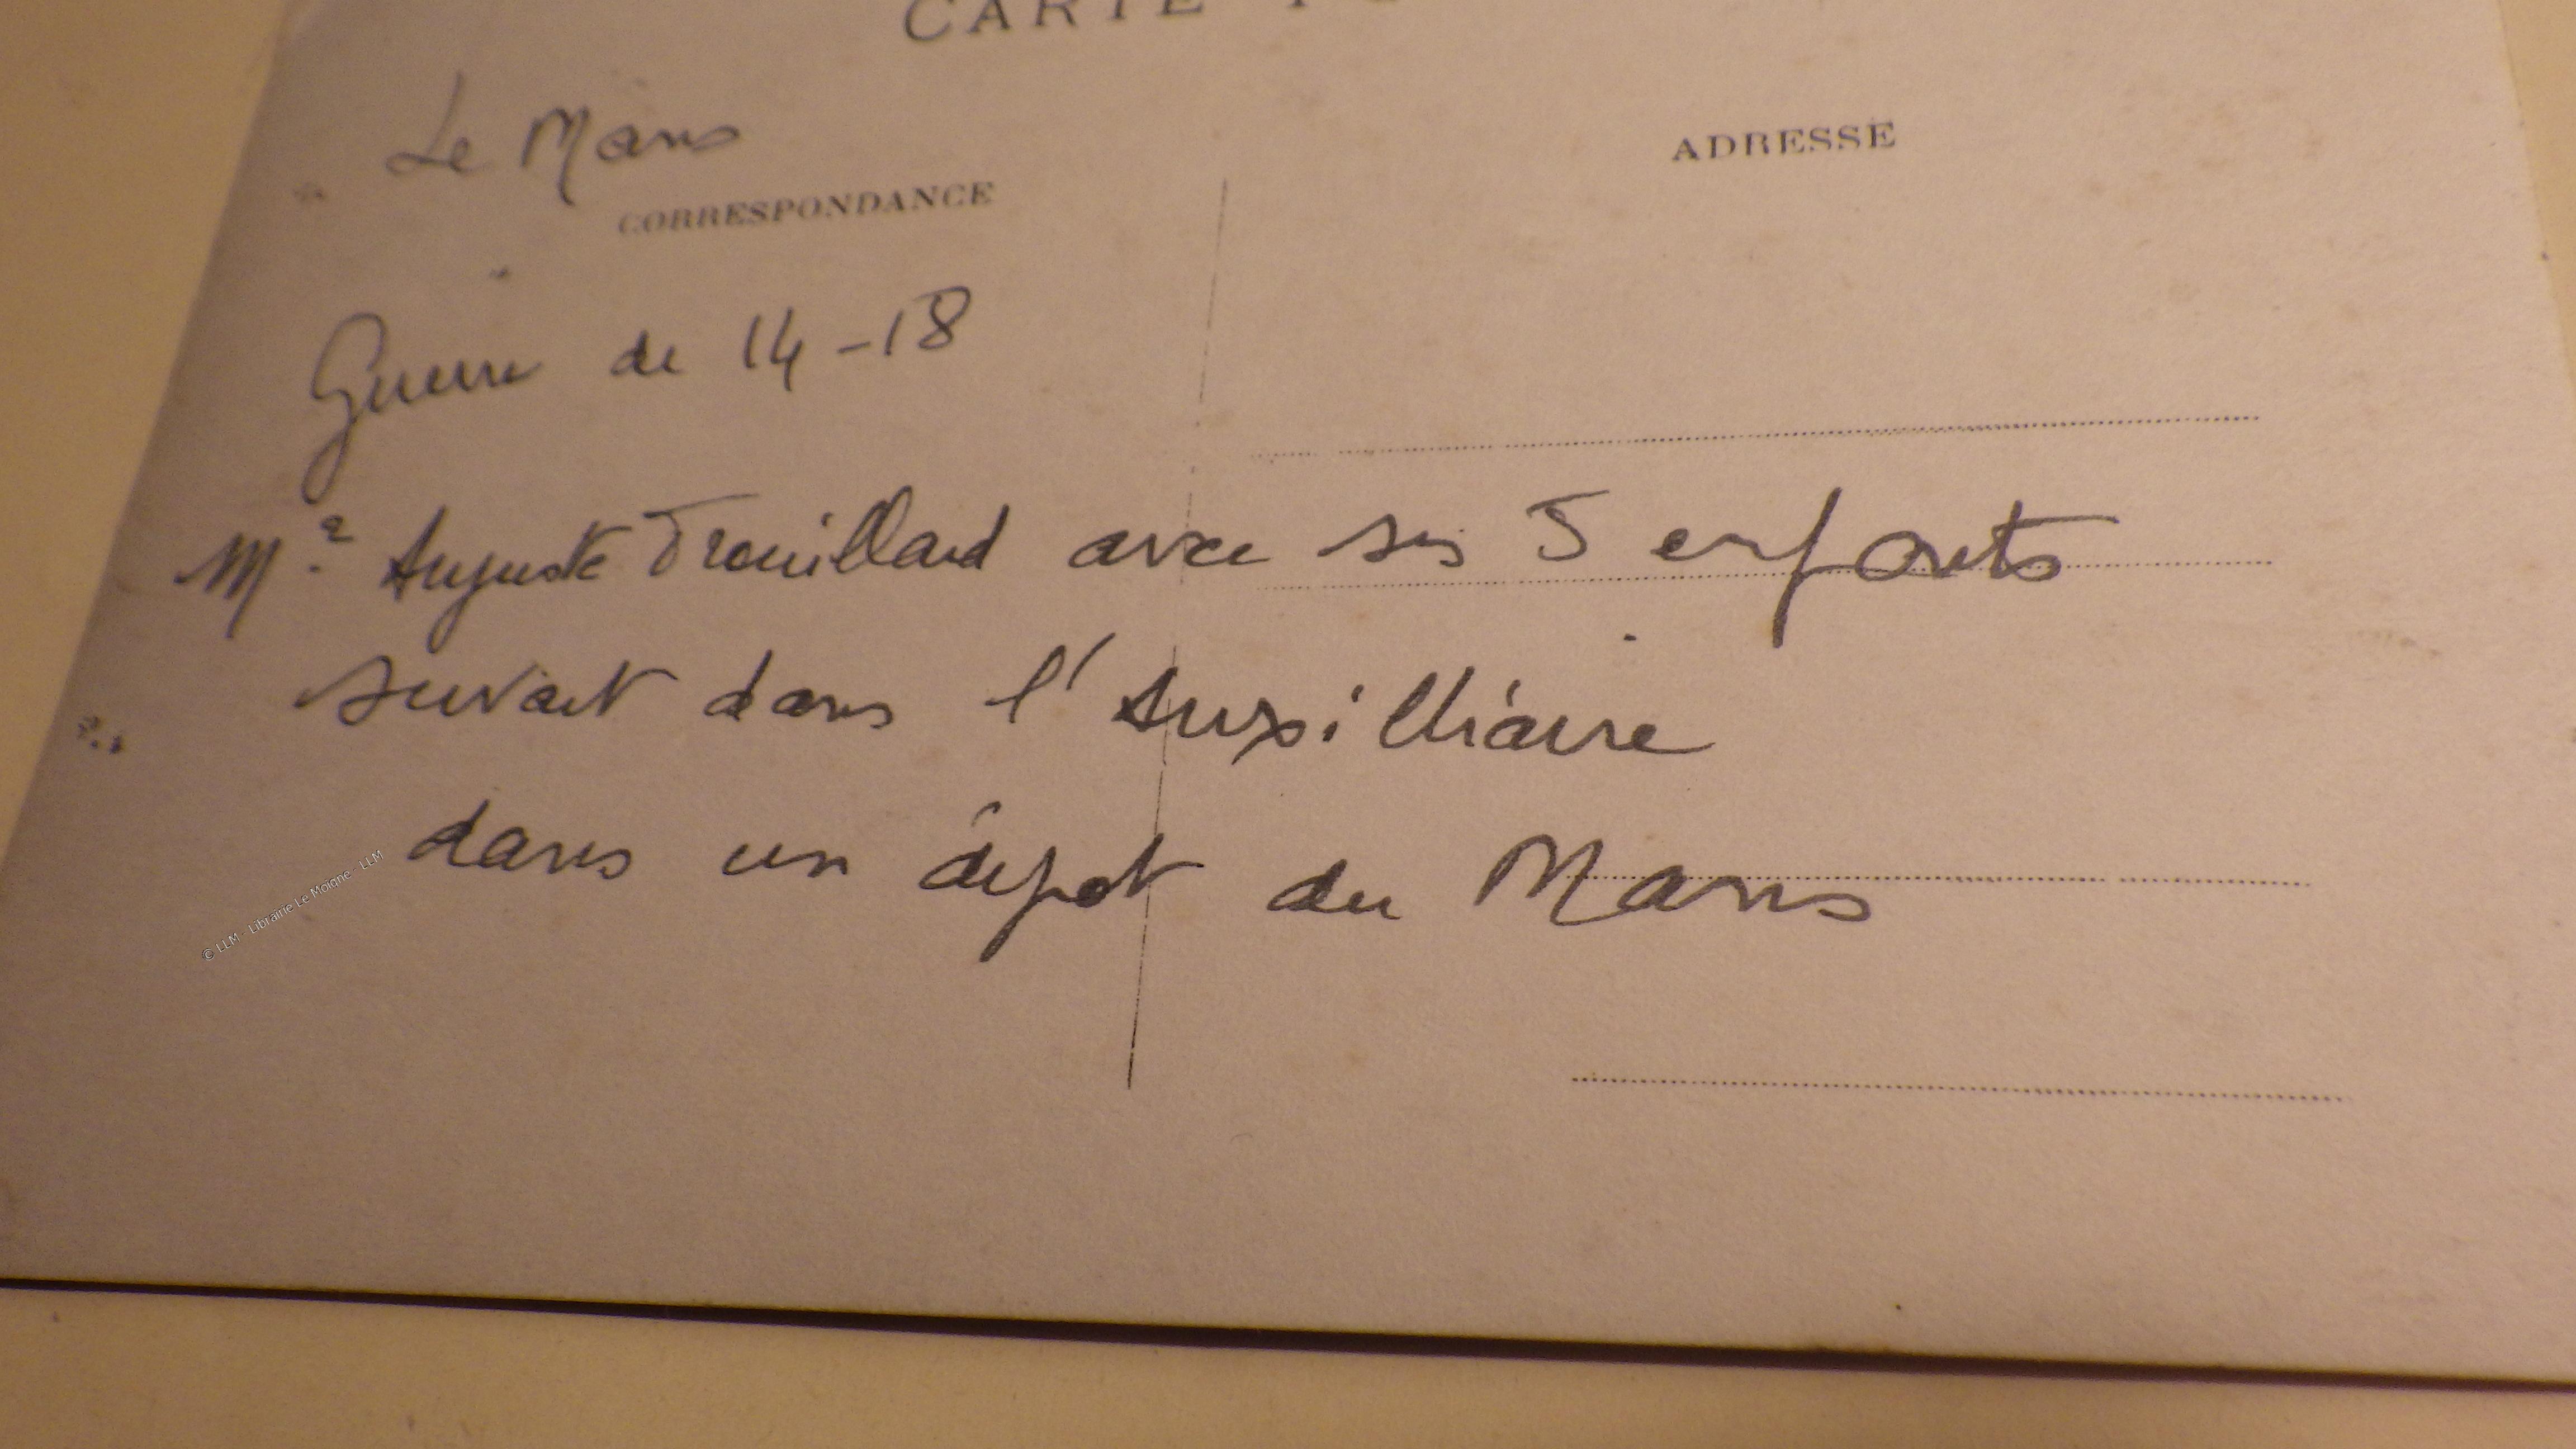 CARTE
Le Mans
ADRESSE
CORRESPONDANCE
Guerre de 14-18
Mr Auguste Trouillard avec ses 5 enfants
servait dans l'Auxilliaire
dans un dépot du Mans
© LLM - Librairie Le Moigne - LLM